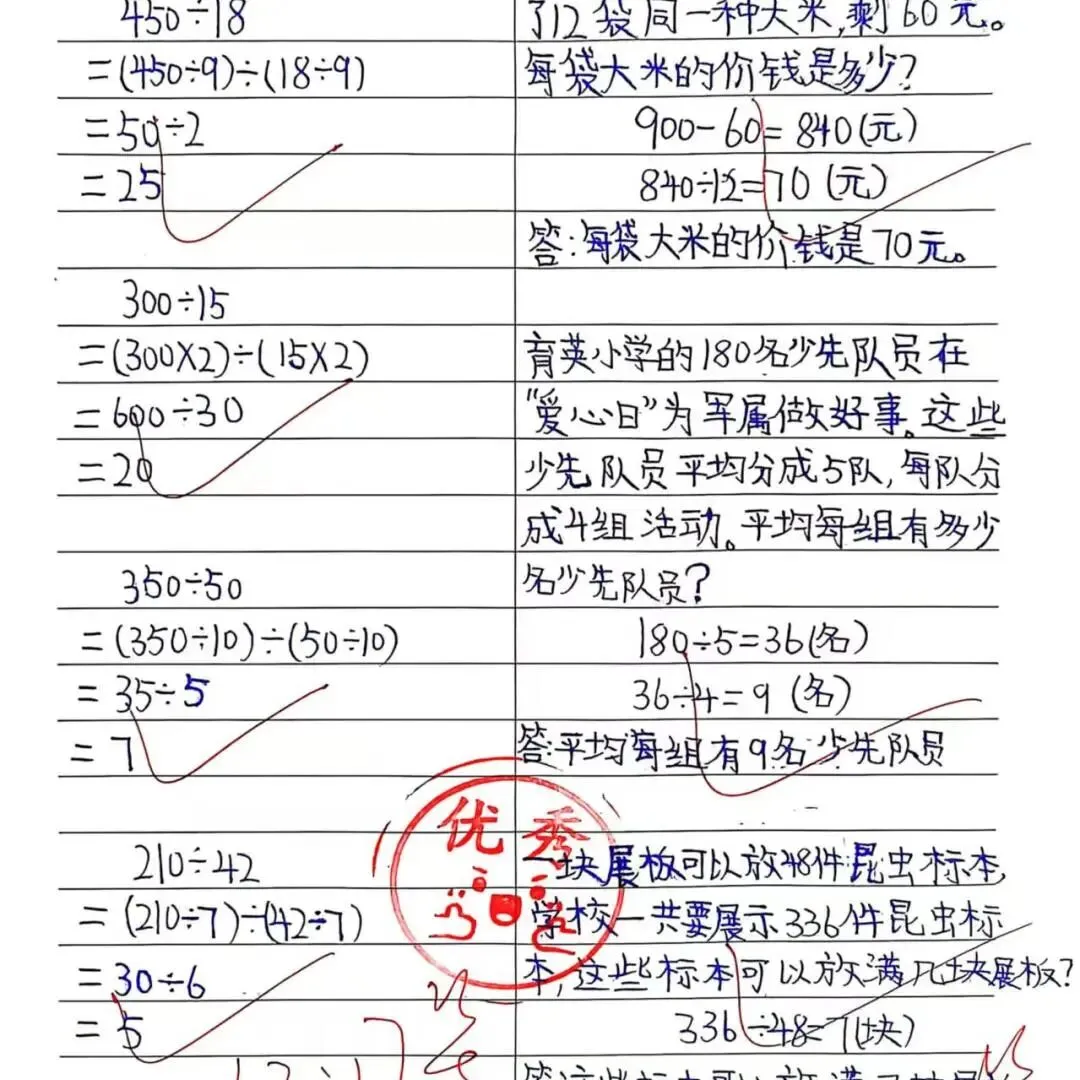 450÷18
=(450÷9)÷(18÷9)
=50÷2
=25
300÷15
=(300×2)÷(15×2)
=600÷30
=20
350÷50
=(350÷10)÷(50÷10)
=35÷5
=7
210÷42
=(210÷7)÷(42÷7)
=30÷6
=5
了12袋同一种大米,剩60元。
每袋大米的价钱是多少?
900-60=840(元)
840÷12=70(元)
答:每袋大米的价钱是70元。
育英小学的180名少先队员在
“爱心日”为军属做好事。这些
少先队员平均分成5队,每队分
成4组活动。平均每组有多少
名少先队员?
180÷5=36(名)
36÷4=9(名)
答:平均每组有9名少先队员
一块展板可以放48件昆虫标本,
学校一共要展示336件昆虫标
本,这些标本可以放满几块展板?
336÷48=7(块)
优秀